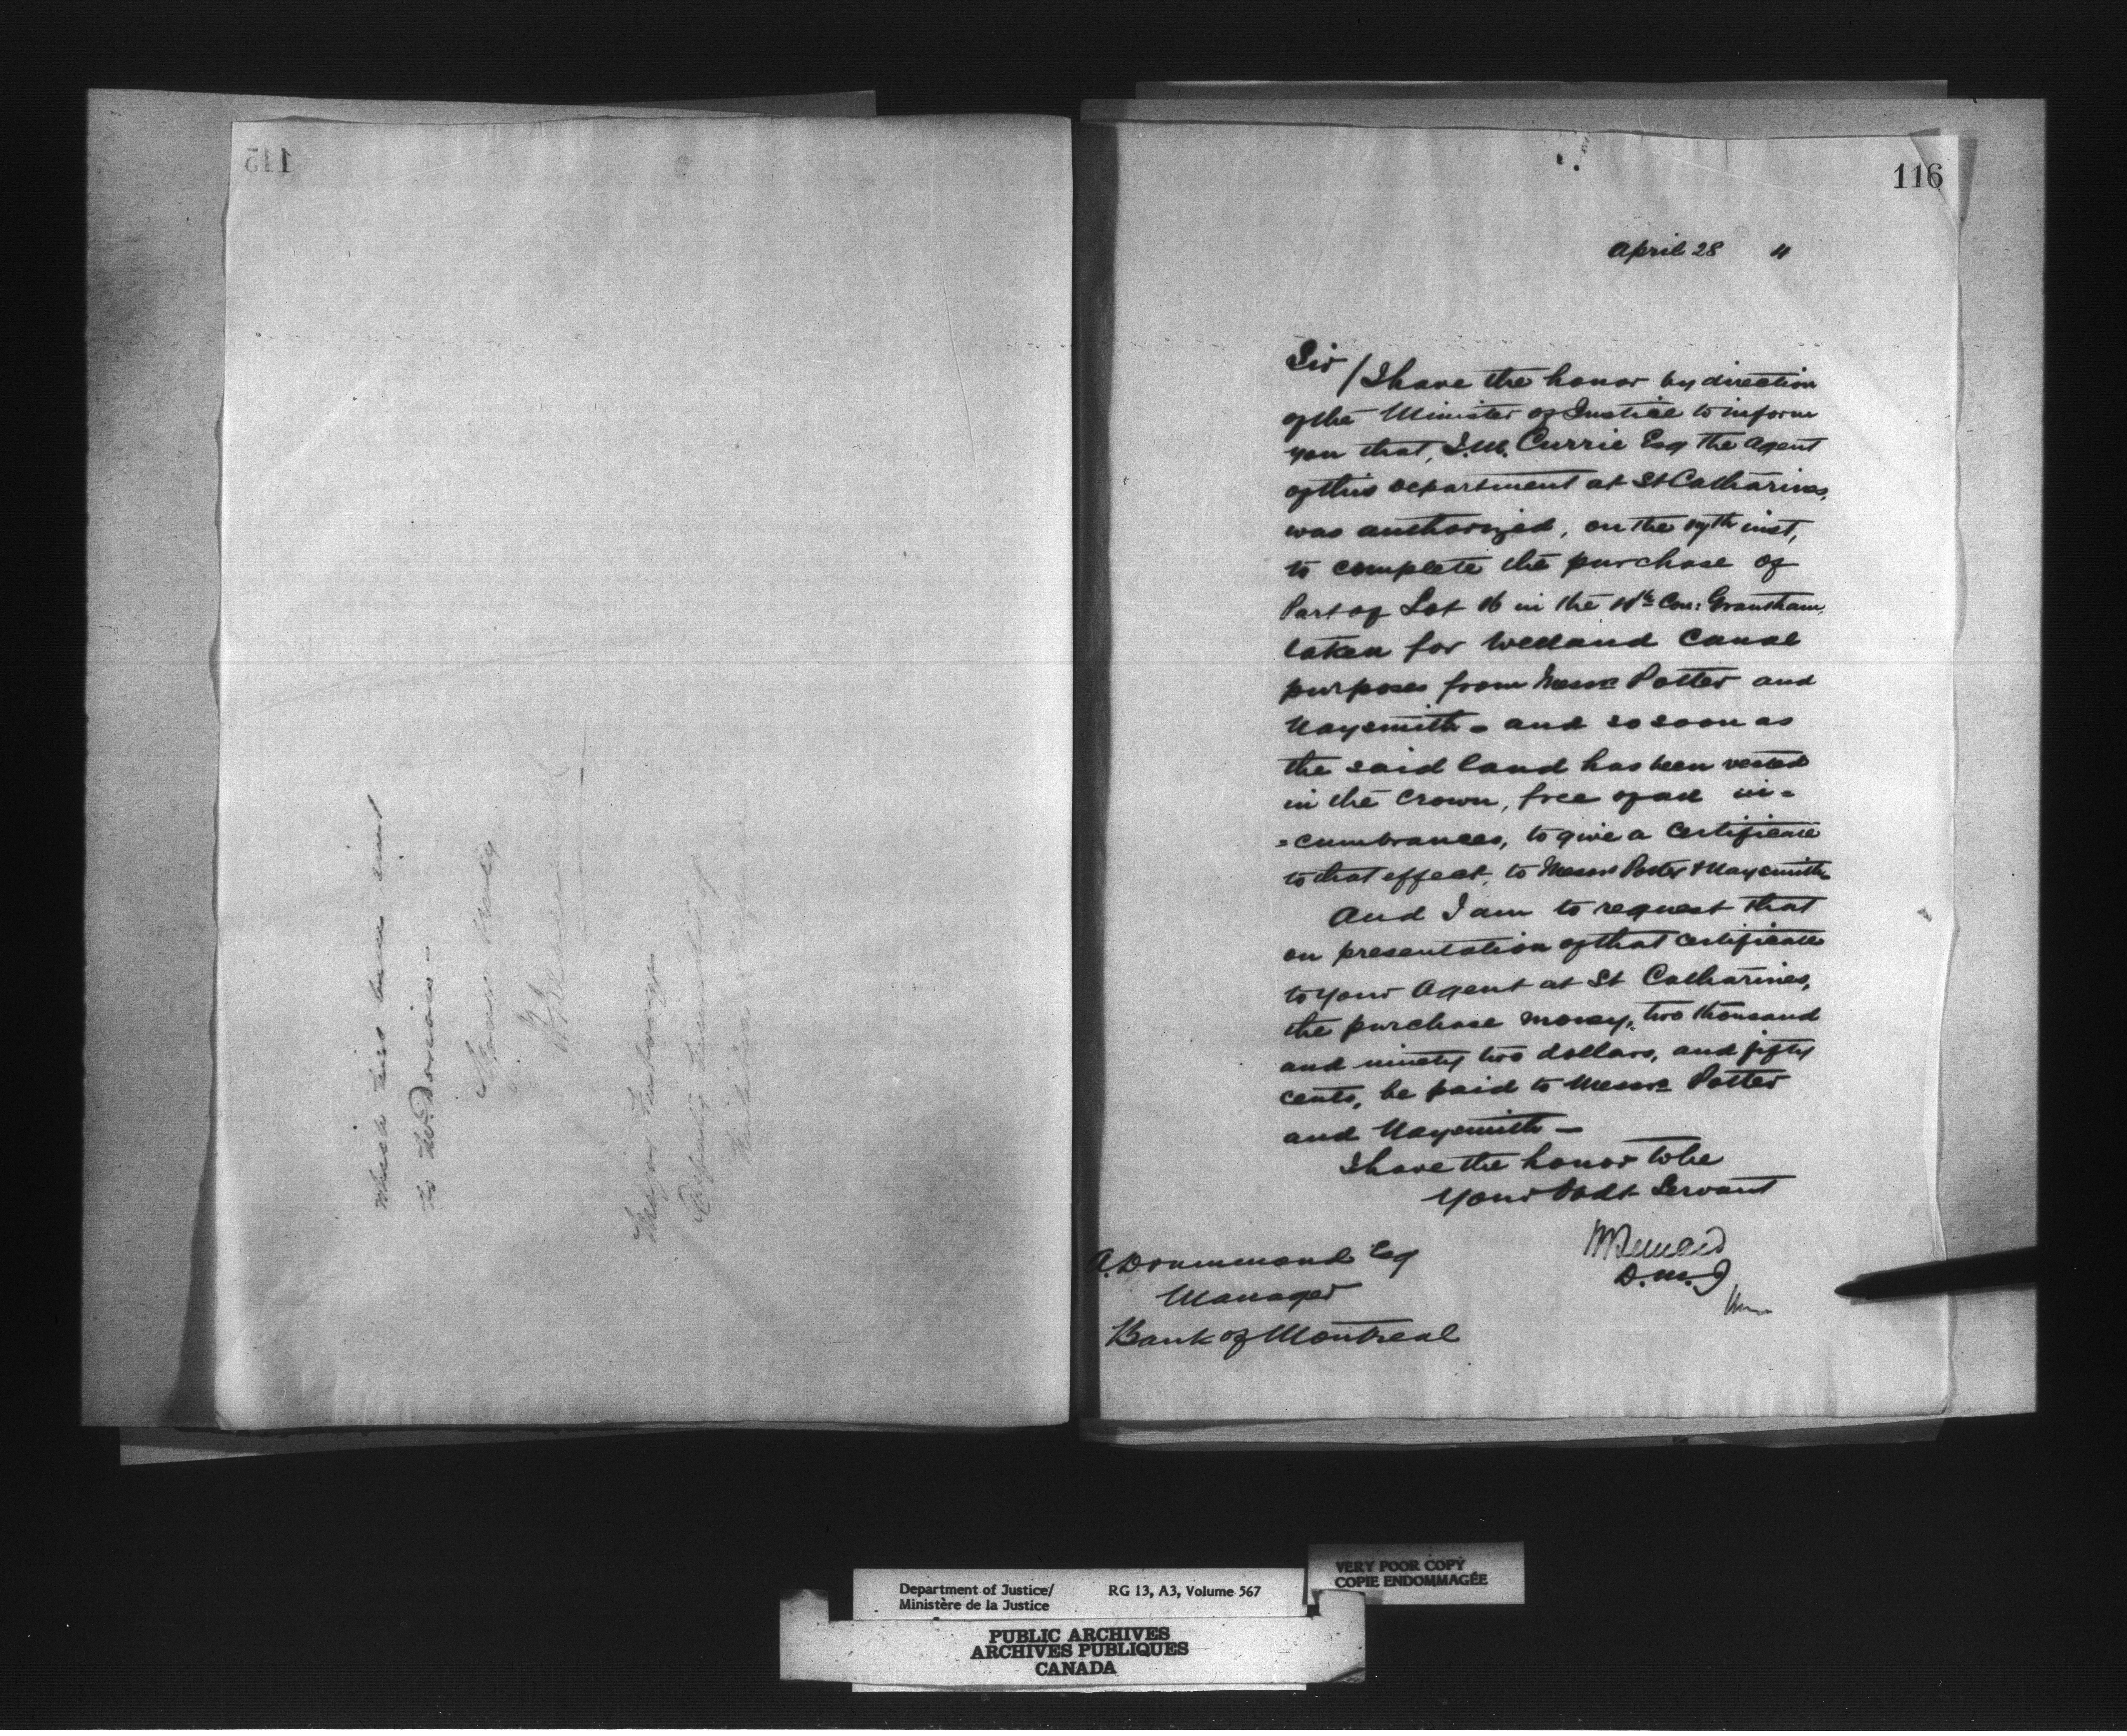 115
which has been sent
to Mr. Dorion -
116
April 28 "
Sir / I have the honor by direction
of the Minister of Justice to inform
you that, J.M. Currie Esq the Agent
of this Department at St Catharines,
was authorized, on the inst,
to complete the purchase of
Part of Lot 16 in the Con: Grantham,
taken for Welland Canal
purposes from Messrs Potter and
Naysmith - and so soon as
the said land has been vested
in the Crown, free of all in=
=cumbrances, to give a Certificate
to that effect, to Messrs Potter & Naysmith
And I am to request that
on presentation of that Certificate
to your Agent at St Catharines,
the purchase money, two thousand
and ninety two dollars, and fifty
cents, be paid to Messrs Potter
and Naysmith —
I have the honor to be
Your Obdt Servant
H Bernard
D.M.J
A. Drummond Esq
Manager
Bank of Montreal
Department of Justice/ RG 13, A3, Volume 567
Ministère de la Justice
VERY POOR COPY
COPIE ENDOMMAGÉE
PUBLIC ARCHIVES
ARCHIVES PUBLIQUES
CANADA